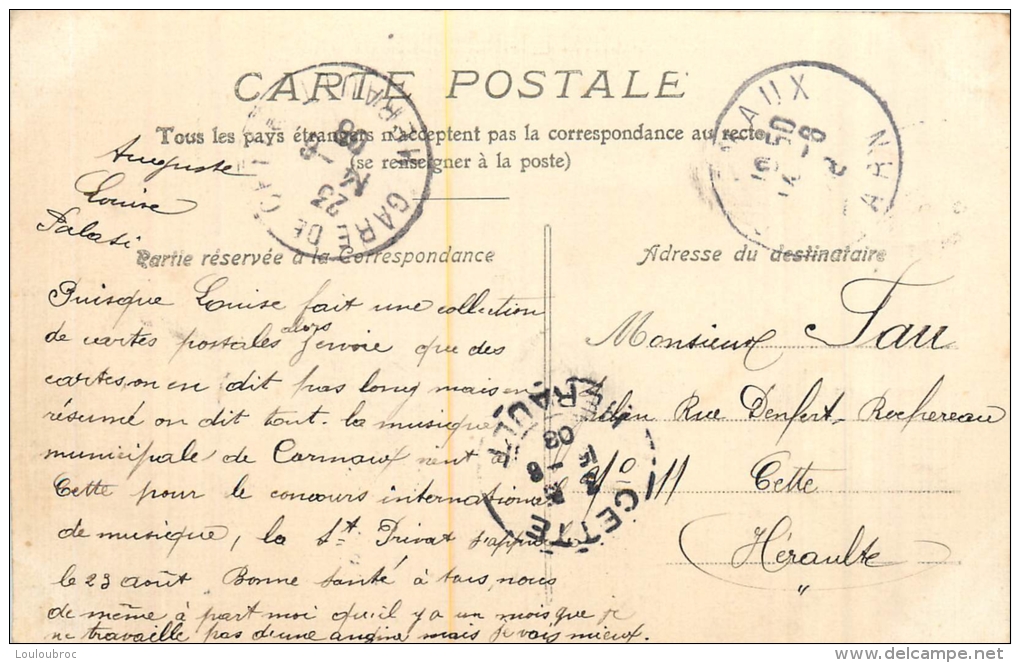 CARTE POSTALE
Tous les pays étrangers n'acceptent pas la correspondance au recto
(se renseigner à la poste)
Auguste
Louise
Palasi
Partie réservée à la Correspondance
Puisque Louise fait une collection
de cartes postales alors j'envoie que des
cartes, on en dit pas long mais en
résumé on dit tout. la musique
municipale de Carmaux vient à
Cette pour le concours international
de musique, la St Privat
le 23 août, Bonne santé à tous, nous
de même à part moi qu'il y a un mois que je
ne travaille pas d'une angine mais je vais mieux.
Adresse du destinataire
Monsieur Tau
Rue Denfert-Rochereau
N° 11 Cette
Héraulte
"
GARE DE CETTE HERAULT
23
8
08
MAUX TARN
16 50
14 - 8
CETTE HERAULT
8
08
Louloubroc
delcampe.net